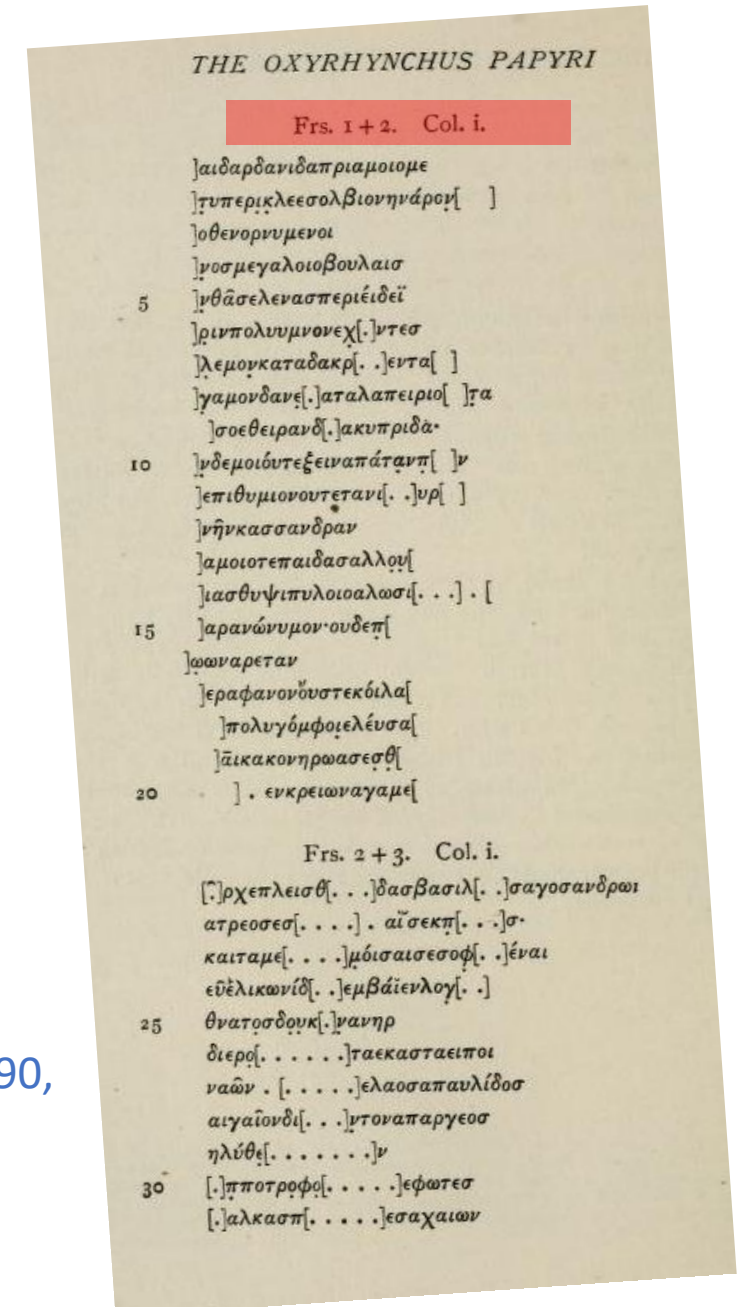 THE OXYRHYNCHUS PAPYRI
Frs. 1 + 2. Col. i.
]αιδαρδανιδαπριαμοιομε
]τ̣υπερι̣κ̣λεεσολβιονηνάρον̣[ ]
]οθενορνυμενοι
]ν̣οσμεγαλοιοβουλαισ
5 ]ν̣θᾶσελενασπεριέιδεϊ
]ρ̣ινπολυυμνονεχ̣[.]ντεσ
]λ̣εμον̣καταδακρ[. .]εντα[ ]
]γ̣αμονδανε̣[.]αταλαπειριο[ ]τ̣α
]σοεθειρανδ[.]ακυπριδὰ·
10 ]ν̣δεμοιόυτεξ̣ειναπάτα̣νπ̣[ ]ν
]επιθυμιονουτε̣τανι[. .]υρ[ ]
]ν̣ῆνκασσανδραν
]αμοιοτεπαιδασαλλο̣υ̣[
]ιασθυψιπυλοιοαλωσι[. . .] . [
15 ]αρανώνυμον·ουδεπ̣[
]ω̣ωναρεταν
]εραφανονὅυστεκόιλα[
]πολυγόμφοι̣ελέυσα[
]ᾱικακονηρωασεσ̣θ̣[
20 ] . ενκρειωναγαμε[
Frs. 2 + 3. Col. i.
[.͂]ρχεπλεισθ[. . .]δασβασιλ[. .]σαγοσανδρωι
ατρεοσεσ[. . . .] . αΐσεκπ̣[. . .]σ·
καιταμε[. . . .]μ̣όισαισεσοφ̣[. .]έναι
εῦἑλικωνίδ̣[. .]εμβάϊενλογ̣[. .]
25 θνατο̣σδο̣υκ̣[.]ν̣ανηρ
διερο̣[. . . . . .]ταεκασταειποι
ναῶν . [. . . . .]ελαοσαπαυλίδοσ
αιγαῖονδι[. . .]ν̣τοναπαργεοσ
ηλύθε̣[. . . . . . .]ν
30 [.]π̣ποτρο̣φο̣[. . . . .]εφωτεσ
[.]αλκασπ[. . . . .]εσαχαιων
90,